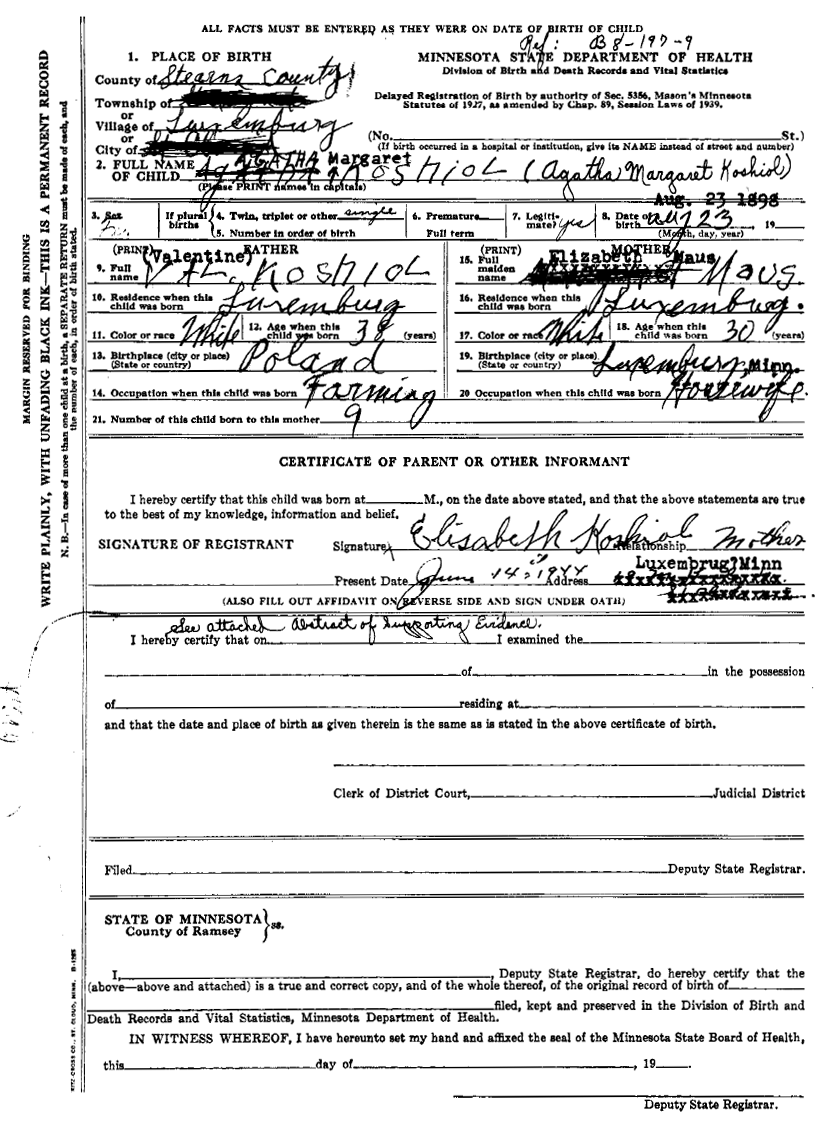 ALL FACTS MUST BE ENTERED AS THEY WERE ON DATE OF BIRTH OF CHILD
Ref: B8-197-9
1. PLACE OF BIRTH
MINNESOTA STATE DEPARTMENT OF HEALTH
Division of Birth and Death Records and Vital Statistics
County of Stearns County
Township of
or
Village of Luxemburg
or
City of
Delayed Registration of Birth by authority of Sec. 5356, Mason's Minnesota
Statutes of 1927, as amended by Chap. 89, Session Laws of 1939.
(No. St.)
(If birth occurred in a hospital or institution, give its NAME instead of street and number)
2. FULL NAME OF CHILD AGATHA Margaret KOSHIOL (Agatha Margaret Koshiol)
(Please PRINT names in capitals)
Aug. 23 1898
3. Sex
If plural births
4. Twin, triplet or other single
5. Number in order of birth
6. Premature
Full term
7. Legitimate? yes
8. Date of birth Aug 23 19
(Month, day, year)
(PRINT) FATHER
(Valentine)
9. Full name VAL. KOSHIOL
10. Residence when this child was born Luxemburg
11. Color or race White
12. Age when this child was born 38 (years)
13. Birthplace (city or place) (State or country) Poland
14. Occupation when this child was born Farming
(PRINT) MOTHER
Elizabeth Maus
15. Full maiden name Maus.
16. Residence when this child was born Luxemburg.
17. Color or race White
18. Age when this child was born 30 (years)
19. Birthplace (city or place) (State or country) Luxemburg, Minn.
20 Occupation when this child was born Housewife.
21. Number of this child born to this mother 9
CERTIFICATE OF PARENT OR OTHER INFORMANT
I hereby certify that this child was born at M., on the date above stated, and that the above statements are true
to the best of my knowledge, information and belief.
SIGNATURE OF REGISTRANT
Signature Elisabeth Koshiol Relationship Mother
Present Date June 14, 1944 Address Luxembrug?Minn
(ALSO FILL OUT AFFIDAVIT ON REVERSE SIDE AND SIGN UNDER OATH)
See attached Abstract of Supporting Evidence.
I hereby certify that on I examined the
of in the possession
of residing at
and that the date and place of birth as given therein is the same as is stated in the above certificate of birth.
Clerk of District Court, Judicial District
Filed Deputy State Registrar.
STATE OF MINNESOTA
County of Ramsey } ss.
I, , Deputy State Registrar, do hereby certify that the
(above—above and attached) is a true and correct copy, and of the whole thereof, of the original record of birth of
filed, kept and preserved in the Division of Birth and
Death Records and Vital Statistics, Minnesota Department of Health.
IN WITNESS WHEREOF, I have hereunto set my hand and affixed the seal of the Minnesota State Board of Health,
this day of , 19 .
Deputy State Registrar.
MARGIN RESERVED FOR BINDING
WRITE PLAINLY, WITH UNFADING BLACK INK—THIS IS A PERMANENT RECORD
N. B.—In case of more than one child at a birth, a SEPARATE RETURN must be made of each, and
the number of each, in order of birth stated.